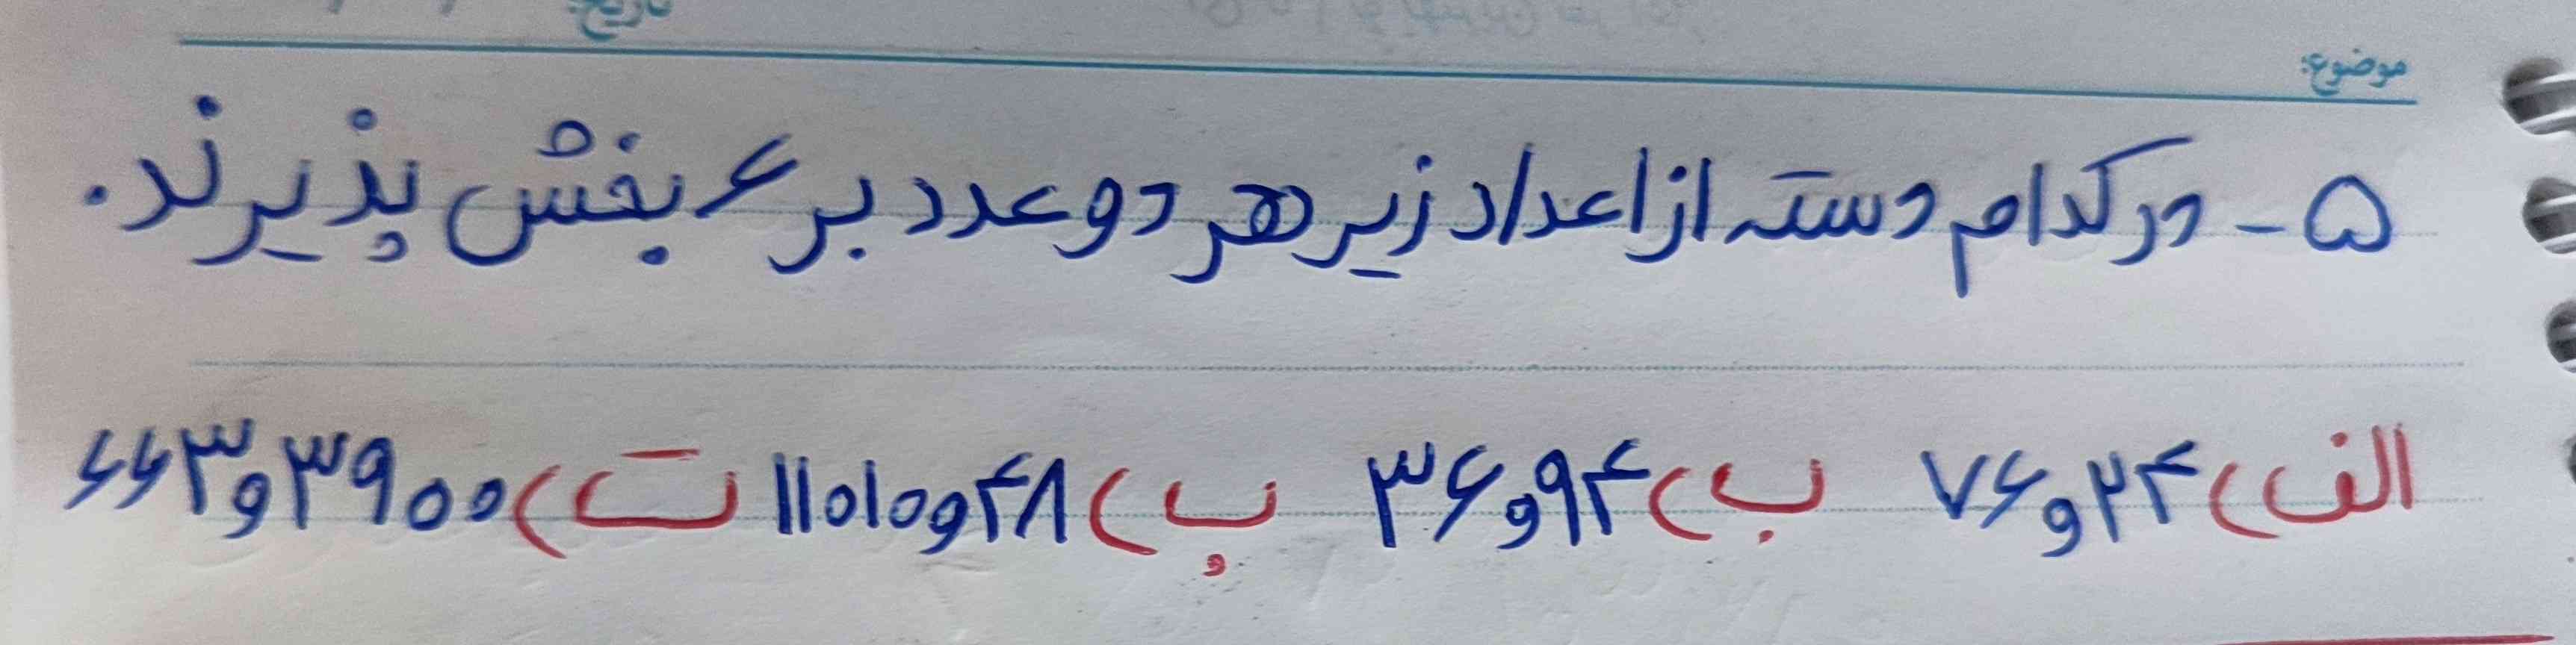 تاریخ:
موضوع:
۵- در کدام دسته از اعداد زیر هر دو عدد بر ۶ بخش پذیرند.
الف) ۲۴ و ۷۶ ب) ۹۴ و ۳۶ پ) ۴۸ و ۱۱۰۱۰ ت) ۳۹۰۰ و ۶۶۳